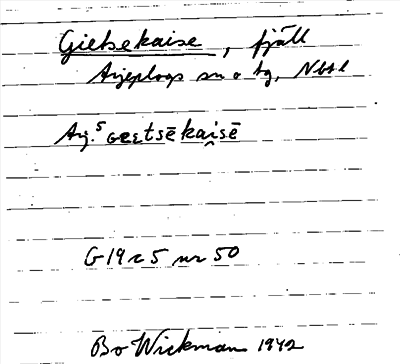 Gietsekaise, fjäll
Arjeplogs sn o tg, Nbtl
Arj. ⁵ɢeɛtsēkai̭sē
G 19 c 5 nr 50
Bo Wickman 1942